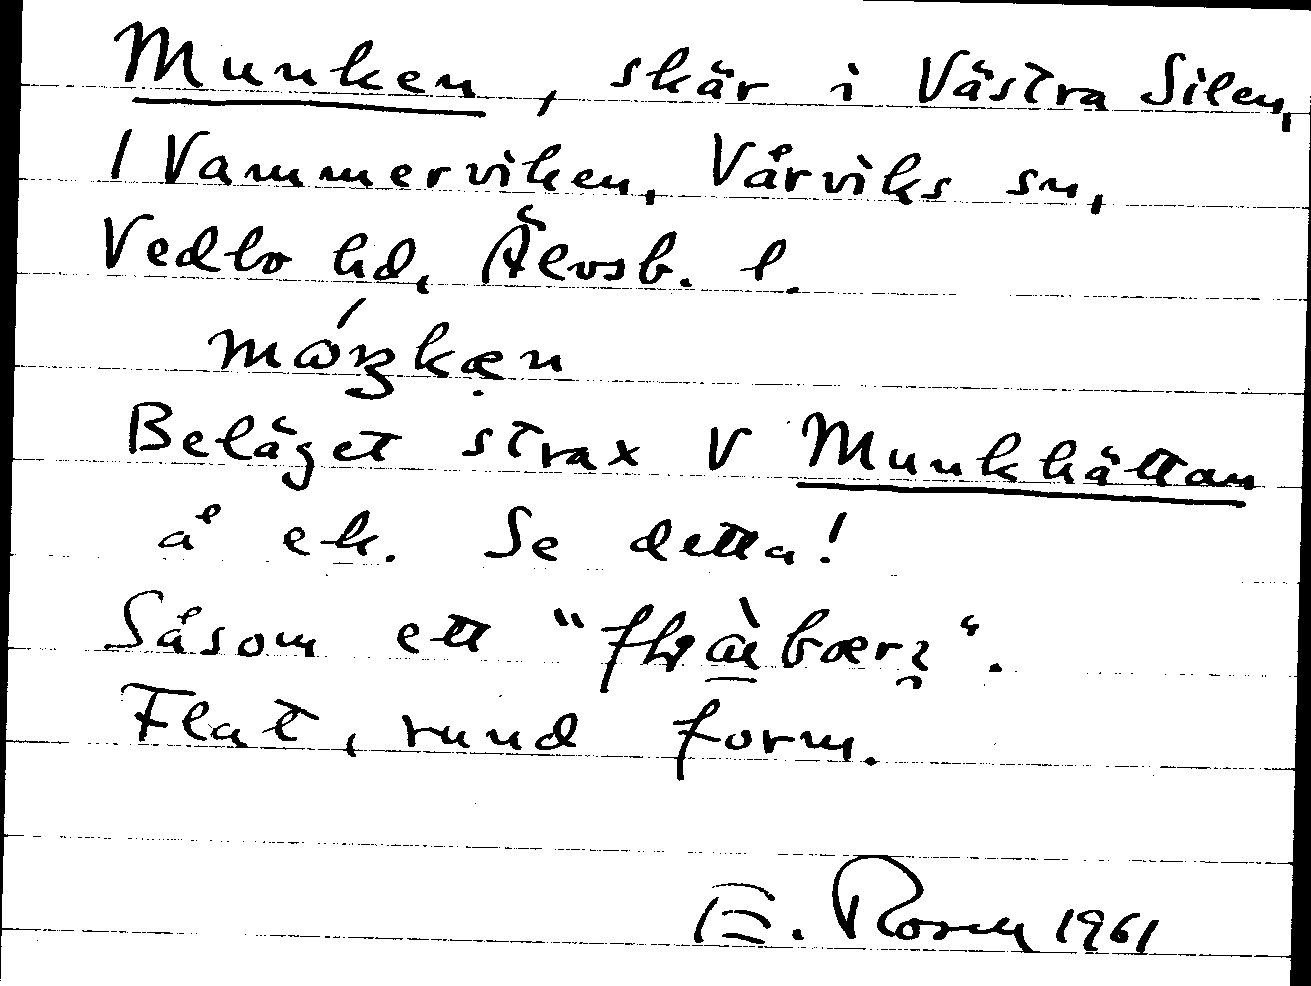 Munken, skär i Västra Silen,
I Vammerviken, Vårviks sn,
Vedbo hd, Älvsb. l.
Beläget strax V Munkhättan
å ek. Se detta!
Såsom ett
Flat, rund form.
E. Rosell 1961